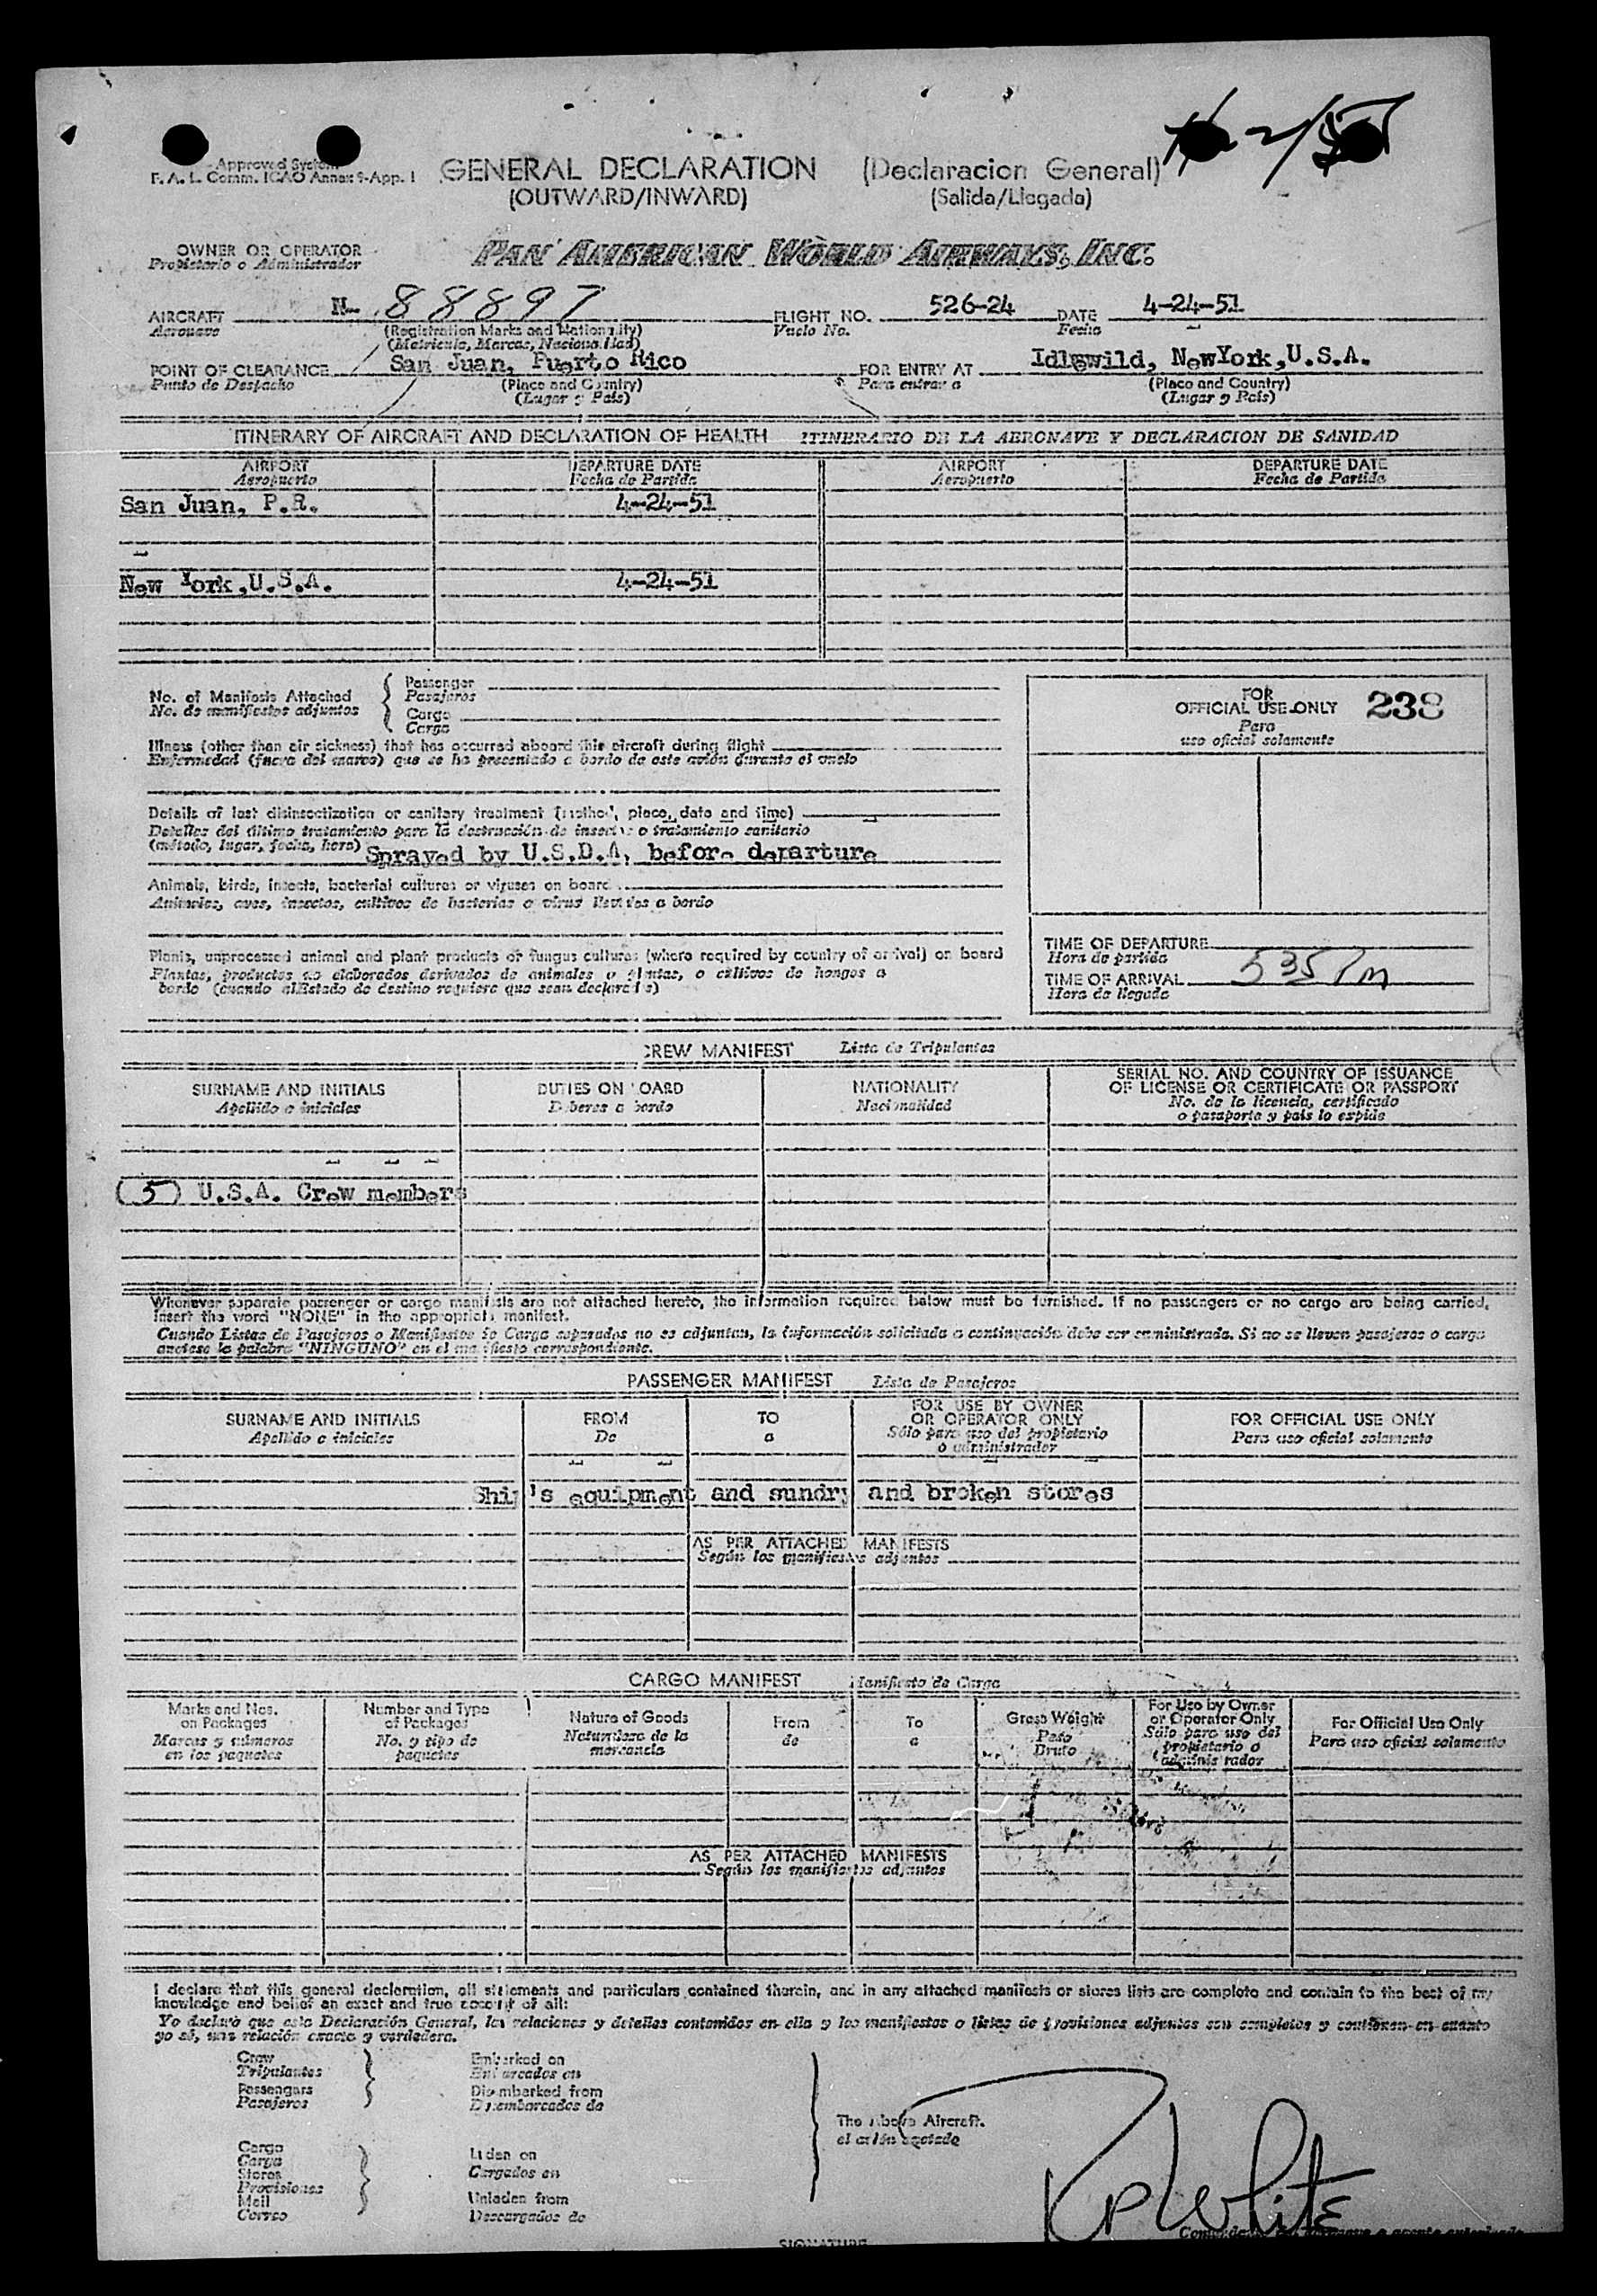 Approved System
F. A. L. Comm. ICAO Annex 9-App. 1
GENERAL DECLARATION (Declaracion General)
(OUTWARD/INWARD) (Salida/Llegada)
OWNER OR OPERATOR PAN AMERICAN WORLD AIRWAYS, INC.
Propietario o Administrador
AIRCRAFT N- 88897 FLIGHT NO. 526-24 DATE 4-24-51
Aeronave (Registration Marks and Nationality) Vuelo No. Fecha
(Matricula, Marcas, Nacionalidad)
POINT OF CLEARANCE San Juan, Puerto Rico FOR ENTRY AT Idlewild, NewYork,U.S.A.
Punto de Despacho (Place and Country) Para entrar a (Place and Country)
(Lugar y Pais) (Lugar y Pais)
ITINERARY OF AIRCRAFT AND DECLARATION OF HEALTH ITINERARIO DE LA AERONAVE Y DECLARACION DE SANIDAD
AIRPORT DEPARTURE DATE AIRPORT DEPARTURE DATE
Aeropuerto Fecha de Partida Aeropuerto Fecha de Partida
San Juan, P.R. 4-24-51
New York,U.S.A. 4-24-51
No. of Manifests Attached
No. de manifiestos adjuntos
Passenger
Pasajeros
Cargo
Carga
FOR
OFFICIAL USE ONLY 238
Para
uso oficial solamente
Illness (other than air sickness) that has occurred aboard this aircraft during flight
Enfermedad (fuera del mareo) que se ha presentado a bordo de este avión durante el vuelo
Details of last disinsectization or sanitary treatment (method, place, date and time)
Detalles del último tratamiento para la destrucción de insectos o tratamiento sanitario
(método, lugar, fecha, hora) Sprayed by U.S.D.A. before departure
Animals, birds, insects, bacterial cultures or viruses on board
Animales, aves, insectos, cultivos de bacterias o virus llevados a bordo
Plants, unprocessed animal and plant products or fungus cultures (where required by country of arrival) on board
Plantas, productos no elaborados derivados de animales o plantas, o cultivos de hongos a
bordo (cuando el Estado de destino requiere que sean declarados)
TIME OF DEPARTURE
Hora de partida
TIME OF ARRIVAL 535 PM
Hora de llegada
CREW MANIFEST Lista de Tripulantes
SURNAME AND INITIALS DUTIES ON BOARD NATIONALITY SERIAL NO. AND COUNTRY OF ISSUANCE
OF LICENSE OR CERTIFICATE OR PASSPORT
Apellido e iniciales Deberes a bordo Nacionalidad No. de la licencia, certificado
o pasaporte y país lo expide
(5) U.S.A. Crew members
Whenever separate passenger or cargo manifests are not attached hereto, the information required below must be furnished. If no passengers or no cargo are being carried,
insert the word "NONE" in the appropriate manifest.
Cuando Listas de Pasajeros o Manifiestos de Carga separados no se adjuntan, la información solicitada a continuación debe ser suministrada. Si no se llevan pasajeros o carga
anótese la palabra "NINGUNO" en el manifiesto correspondiente.
PASSENGER MANIFEST Lista de Pasajeros
SURNAME AND INITIALS FROM TO FOR USE BY OWNER
OR OPERATOR ONLY FOR OFFICIAL USE ONLY
Apellido e iniciales De a Sólo para uso del propietario
o administrador Para uso oficial solamente
Ship's equipment and sundry and broken stores
AS PER ATTACHED MANIFESTS
Según los manifiestos adjuntos
CARGO MANIFEST Manifiesto de Carga
Marks and Nos.
on Packages
Marcas y números
en los paquetes
Number and Type
of Packages
No. y tipo de
paquetes
Nature of Goods
Naturaleza de la
mercancía
From
de
To
a
Gross Weight
Peso
Bruto
For Use by Owner
or Operator Only
Sólo para uso del
propietario o
administrador
For Official Use Only
Para uso oficial solamente
AS PER ATTACHED MANIFESTS
Según los manifiestos adjuntos
I declare that this general declaration, all statements and particulars contained therein, and in any attached manifests or stores lists are complete and contain to the best of my
knowledge and belief an exact and true account of all:
Yo declaro que esta Declaración General, las relaciones y detalles contenidos en ella y los manifiestos o listas de provisiones adjuntos son completos y contienen en cuanto
yo sé, una relación exacta y verdadera.
Crew
Tripulantes
Passengers
Pasajeros
Embarked on
Embarcados en
Disembarked from
Desembarcados de
The Above Aircraft.
el avión anotado
Cargo
Carga
Stores
Provisiones
Mail
Correo
Laden on
Cargados en
Unladen from
Descargados de
KP White
SIGNATURE